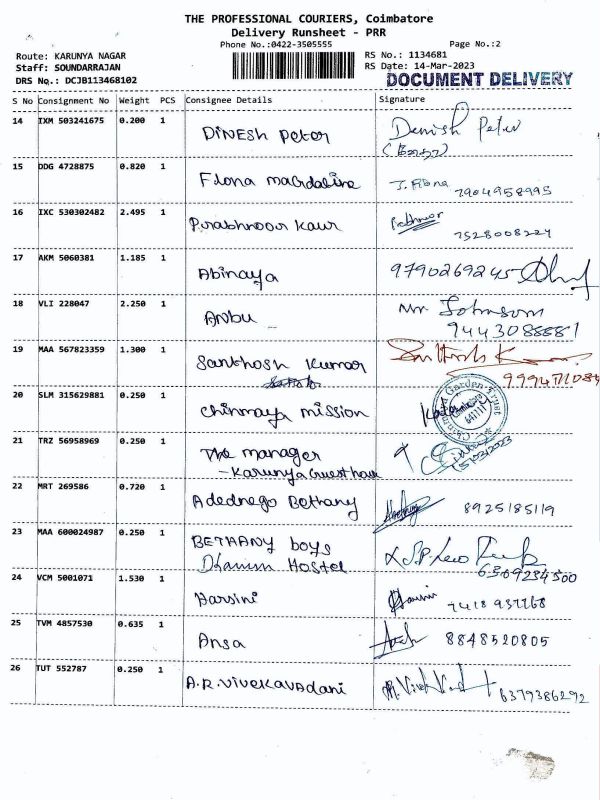 THE PROFESSIONAL COURIERS, Coimbatore
Delivery Runsheet - PRR
Phone No.:0422-3505555 Page No.:2
Route: KARUNYA NAGAR RS No.: 1134681
Staff: SOUNDARRAJAN RS Date: 14-Mar-2023
DRS No.: DCJB113468102 DOCUMENT DELIVERY
S No Consignment No Weight PCS Consignee Details Signature
14 IXM 503241675 0.200 1 DINESH Peter Dennish Peter
15 DDG 4728875 0.820 1 Flona magdaline J. Flona 7904958995
16 IXC 530302482 2.495 1 Prabhnoor Kaur 7528008224
17 AKM 5060381 1.185 1 Abinaya 9790269245
18 VLI 228047 2.250 1 ANBU Mr Johnson
9443088881
19 MAA 567823359 1.300 1 Santhosh Kumar Santhosh Kumar
20 SLM 315629881 0.250 1 chinmaya mission
21 TRZ 56958969 0.250 1 The manager
- Karunya Guest house 15/03/2023
22 MRT 269586 0.720 1 Adednego Bethany 8925185119
23 MAA 600024987 0.250 1 BETHANY boys
Dhanism Hostel 6369234500
24 VCM 5001071 1.530 1 Harsini Harsini 7418937768
25 TVM 4857530 0.635 1 Ansa 8848520805
26 TUT 552787 0.250 1 A.R.Vivekavadani 6379386292